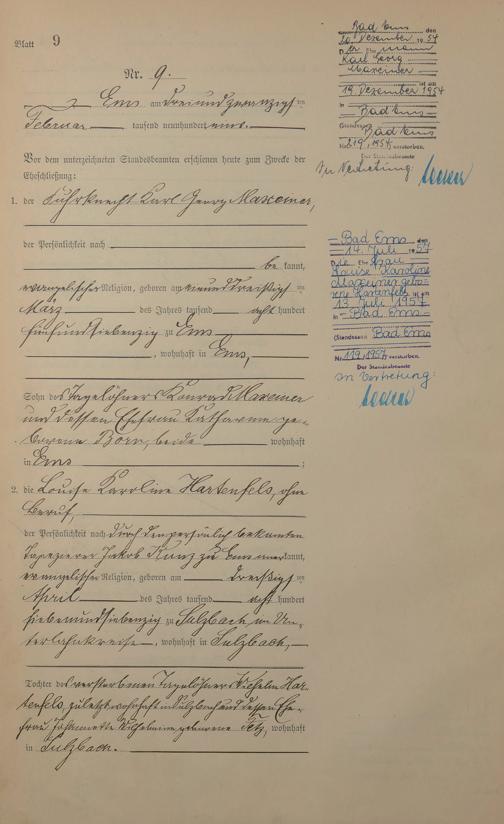 Blatt 9
Nr. 9.
Ems am dreiundzwanzigsten
Februar tausend neunhundert eins.
Vor dem unterzeichneten Standesbeamten erschienen heute zum Zwecke der
Eheschließung:
1. der Fuhrknecht Karl Georg Maxeiner,
der Persönlichkeit nach
be kannt,
evangelischer Religion, geboren am neunundzwanzigsten
März des Jahres tausend acht hundert
fünfundsiebenzig zu Ems
, wohnhaft in Ems,
Sohn des Tagelöhners Konrad Maxeiner
und dessen Ehefrau Katharine ge-
borene Born, beide wohnhaft
in Ems ;
2. die Louise Karoline Hartenfels, ohne
Beruf,
der Persönlichkeit nach durch den persönlich bekannten
Tapezierer Jakob Kunz zu Ems anerkannt,
evangelischer Religion, geboren am dreißigsten
April des Jahres tausend acht hundert
siebenundsiebenzig zu Sulzbach, im Un-
terlahnkreise, wohnhaft in Sulzbach,
Tochter des verstorbenen Tagelöhners Wilhelm Har-
tenfels, zuletzt wohnhaft in Sulzbach und dessen Ehe-
frau Johannette Wilhelmine geborene wohnhaft
in Sulzbach.
Bad Ems den
20. Dezember 1954
Der Ehemann
Karl Georg
Maxeiner
ist am
19. Dezember 1954
in Bad Ems
(Standesamt Bad Ems
Nr. 219/1954 verstorben.
Der Standesbeamte
In Vertretung:
Bad Ems den
14. Juli 1957
Die Ehefrau
Louise Karoline
Maxeiner gebo-
rene Hartenfels ist am
13. Juli 1957
in Bad Ems
(Standesamt Bad Ems
Nr. 119/1957 verstorben.
Der Standesbeamte
In Vertretung: